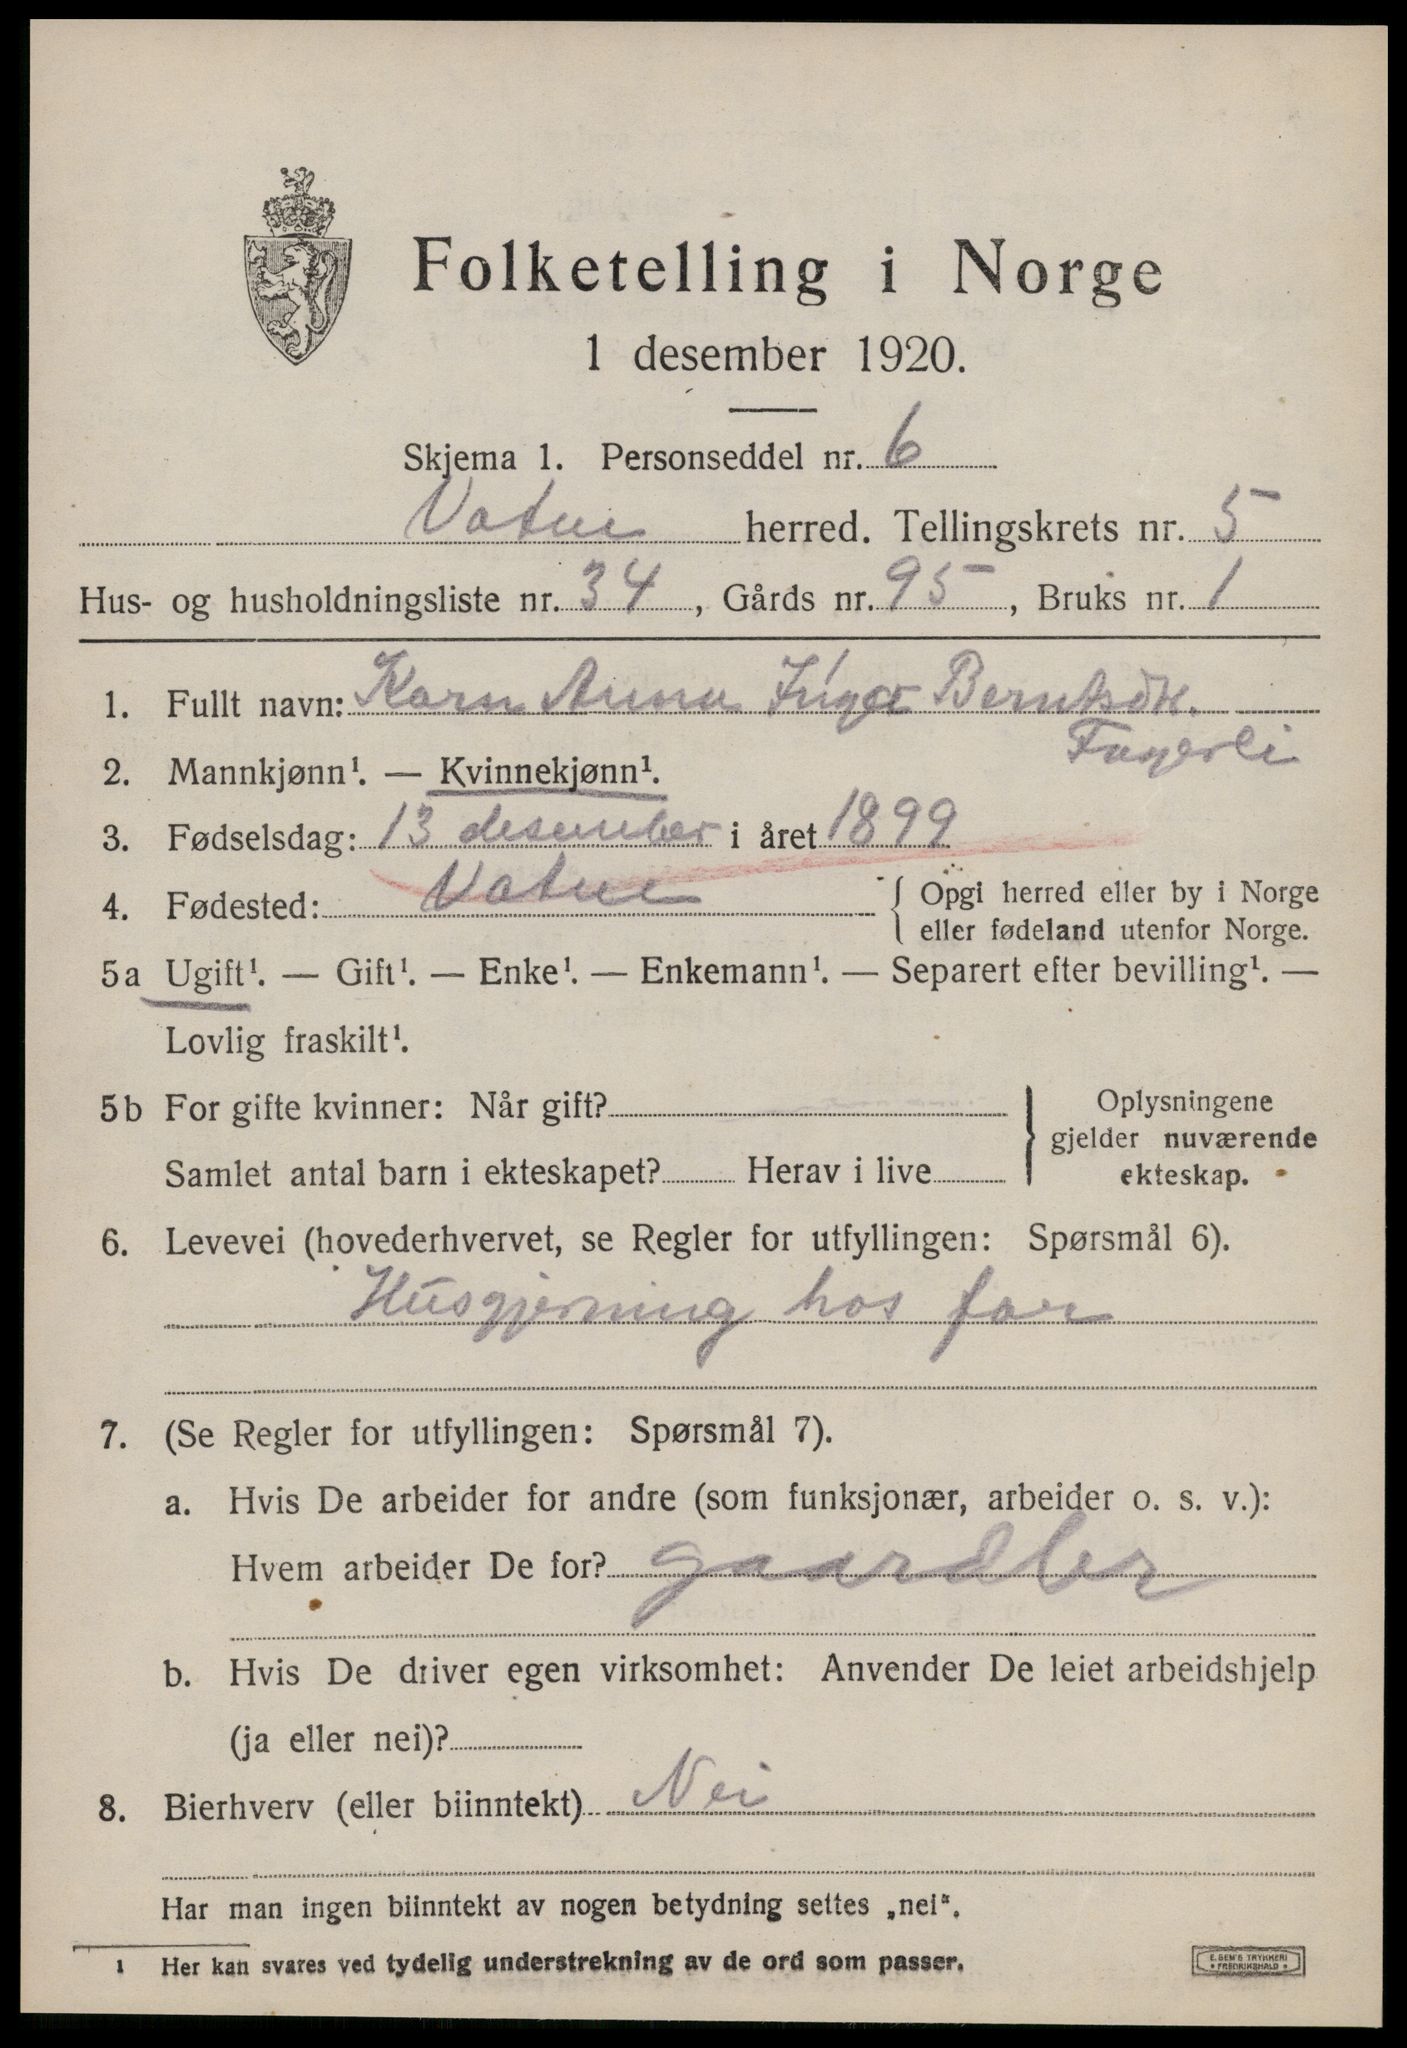 Folketelling i Norge
1 desember 1920.
Skjema 1. Personseddel nr. 6
Vatne herred. Tellingskrets nr. 5
Hus- og husholdningsliste nr. 34, Gårds nr. 95, Bruks nr. 1
1. Fullt navn: Karn Anna Inger Berntsdtr.
Fagerli
2. Mannkjønn¹. — Kvinnekjønn¹.
3. Fødselsdag: 13 desember i året 1899
4. Fødested: Vatne { Opgi herred eller by i Norge
eller fødeland utenfor Norge.
5a Ugift¹. — Gift¹. — Enke¹. — Enkemann¹. — Separert efter bevilling¹. —
Lovlig fraskilt¹.
5b For gifte kvinner: Når gift? } Oplysningene
gjelder nuværende
Samlet antal barn i ekteskapet? Herav i live ekteskap.
6. Levevei (hovederhvervet, se Regler for utfyllingen: Spørsmål 6).
Husgjerning hos far
7. (Se Regler for utfyllingen: Spørsmål 7).
a. Hvis De arbeider for andre (som funksjonær, arbeider o. s. v.):
Hvem arbeider De for? gaardbr
b. Hvis De driver egen virksomhet: Anvender De leiet arbeidshjelp
(ja eller nei)?
8. Bierhverv (eller biinntekt) Nei
Har man ingen biinntekt av nogen betydning settes „nei“.
1 Her kan svares ved tydelig understrekning av de ord som passer.
E. SEM'S TRYKKERI
• FREDRIKSHALD •